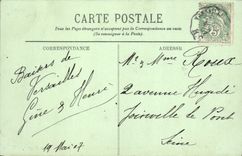 CARTE POSTALE
Tous les Pays étrangers n'acceptent pas la Correspondance au recto.
(Se renseigner à la Poste).
CORRESPONDANCE
ADRESSE
Baisers de
Versailles
Henri
19 Mai 07
Mr & Mme Roux
2 avenue
Joinville le Pont
Seine